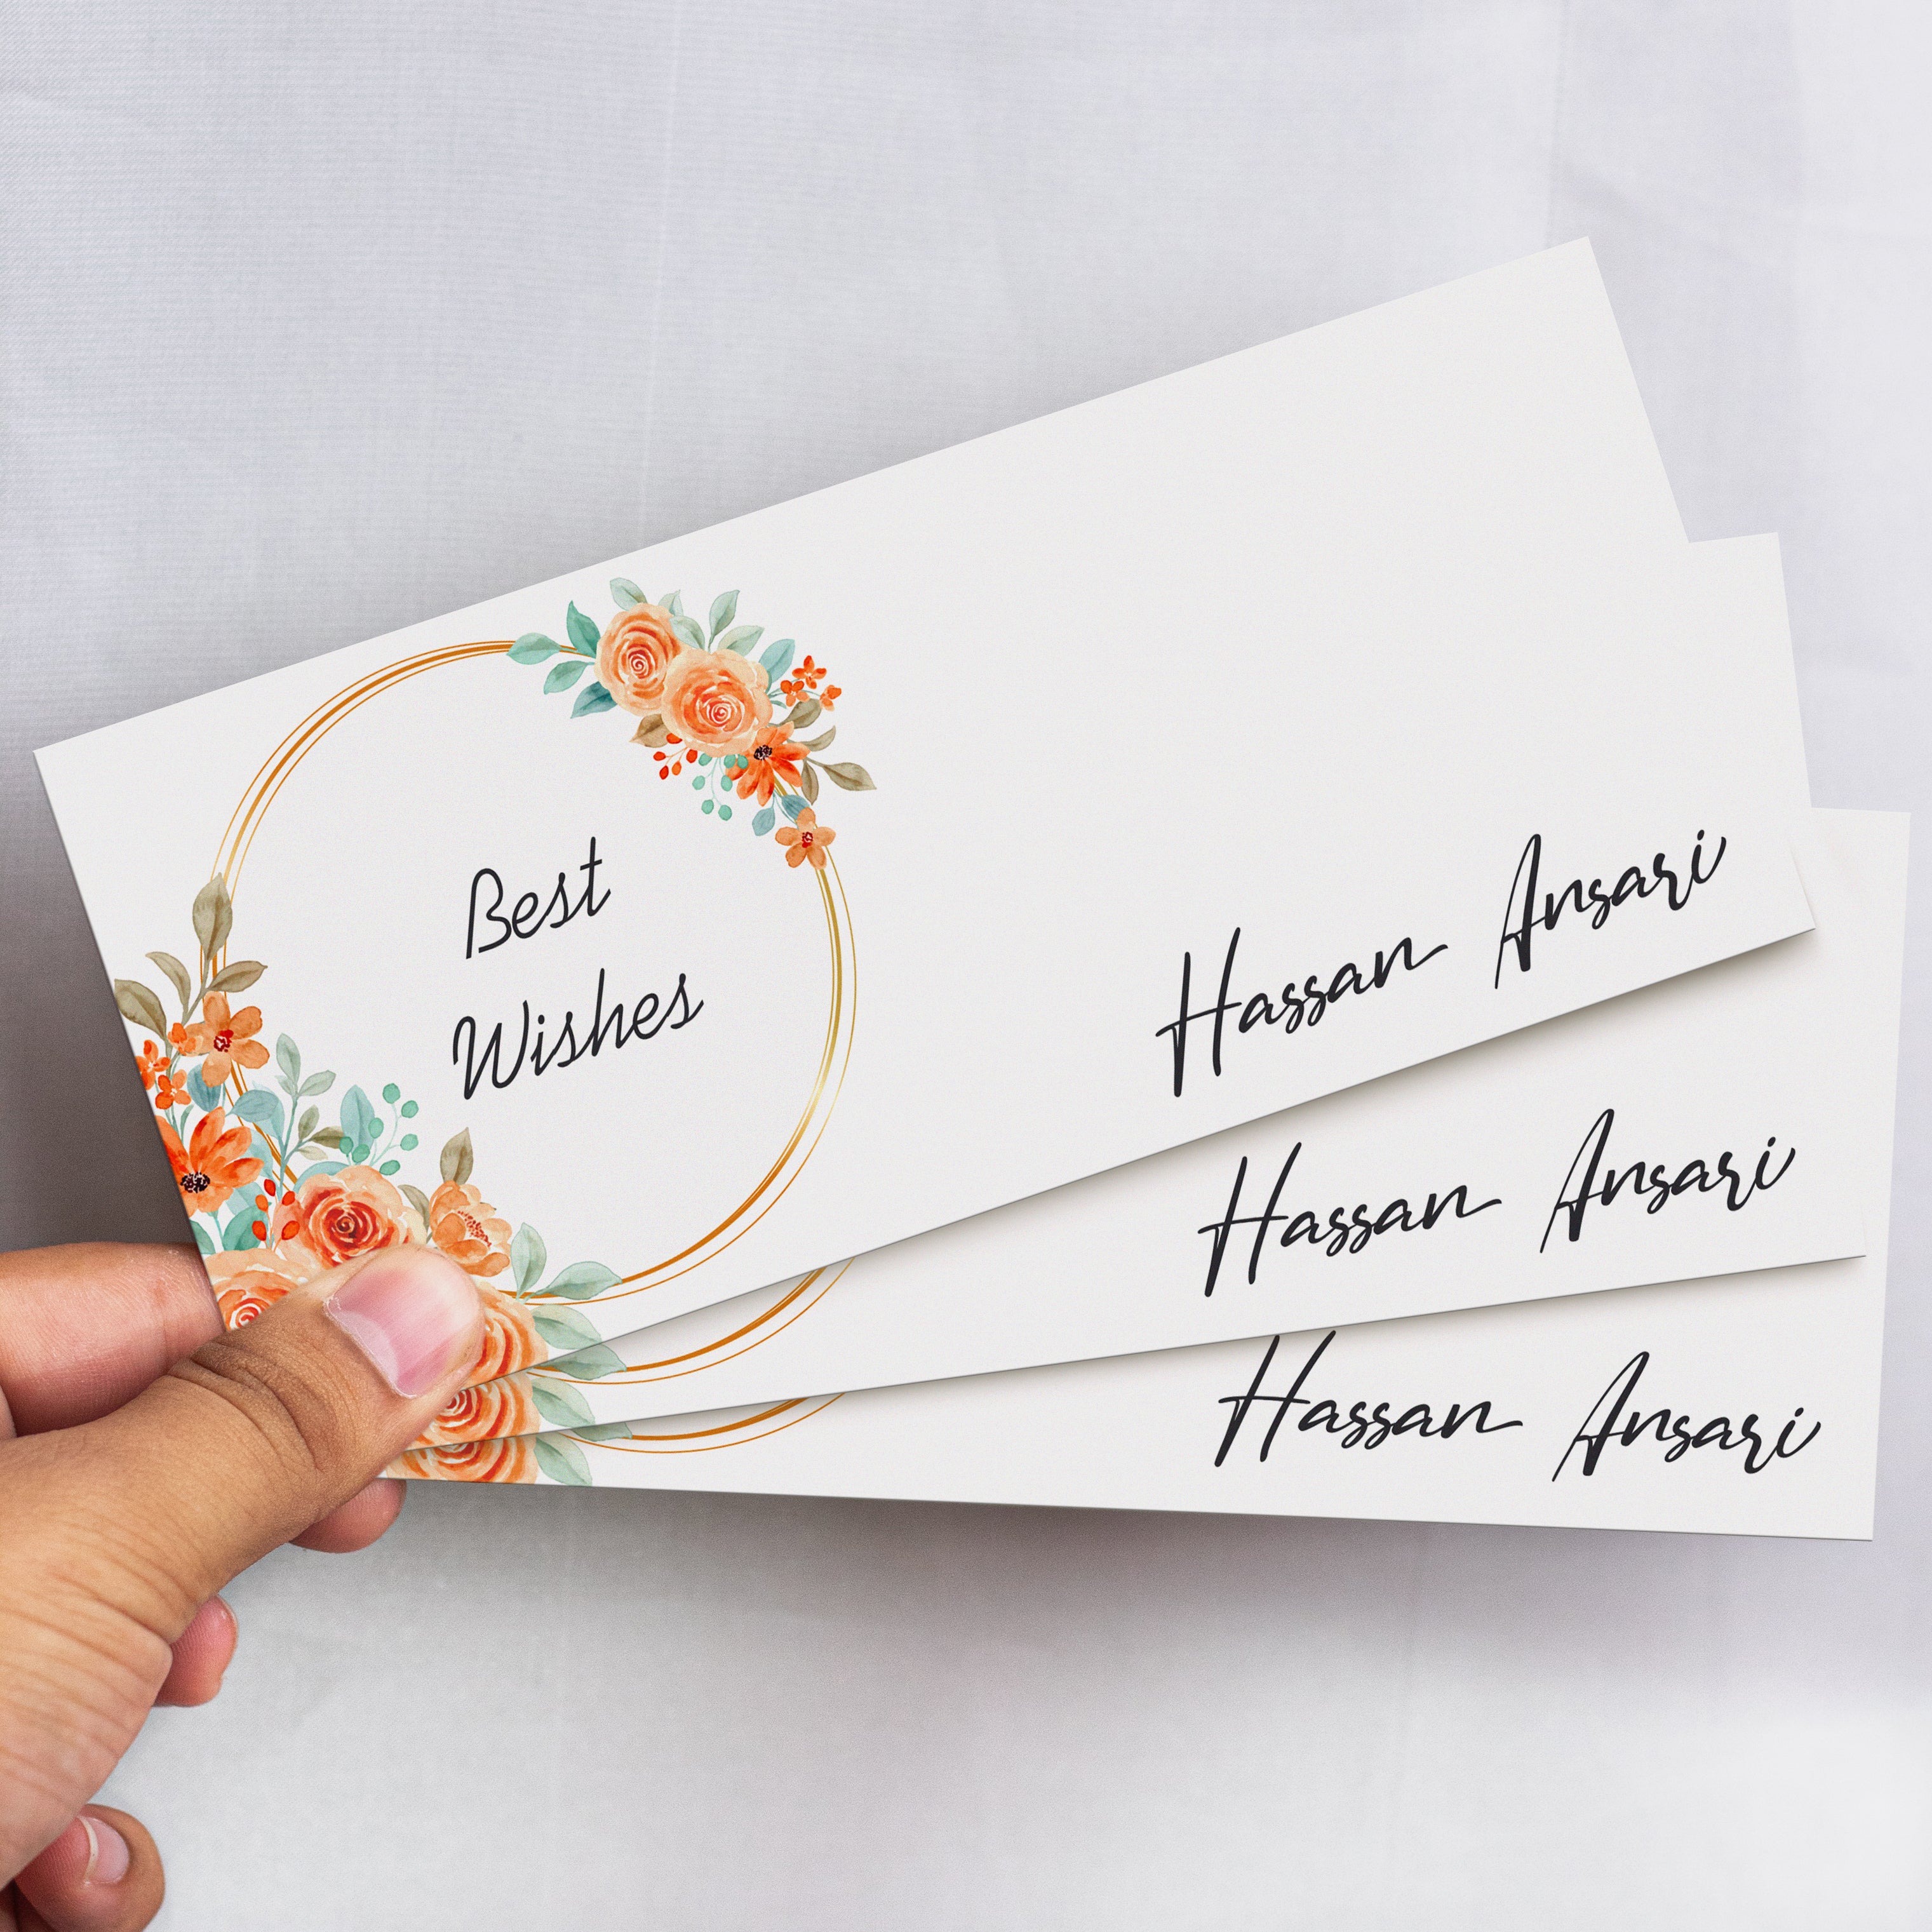 Best
Wishes
Hassan Ansari
Hassan Ansari
Hassan Ansari